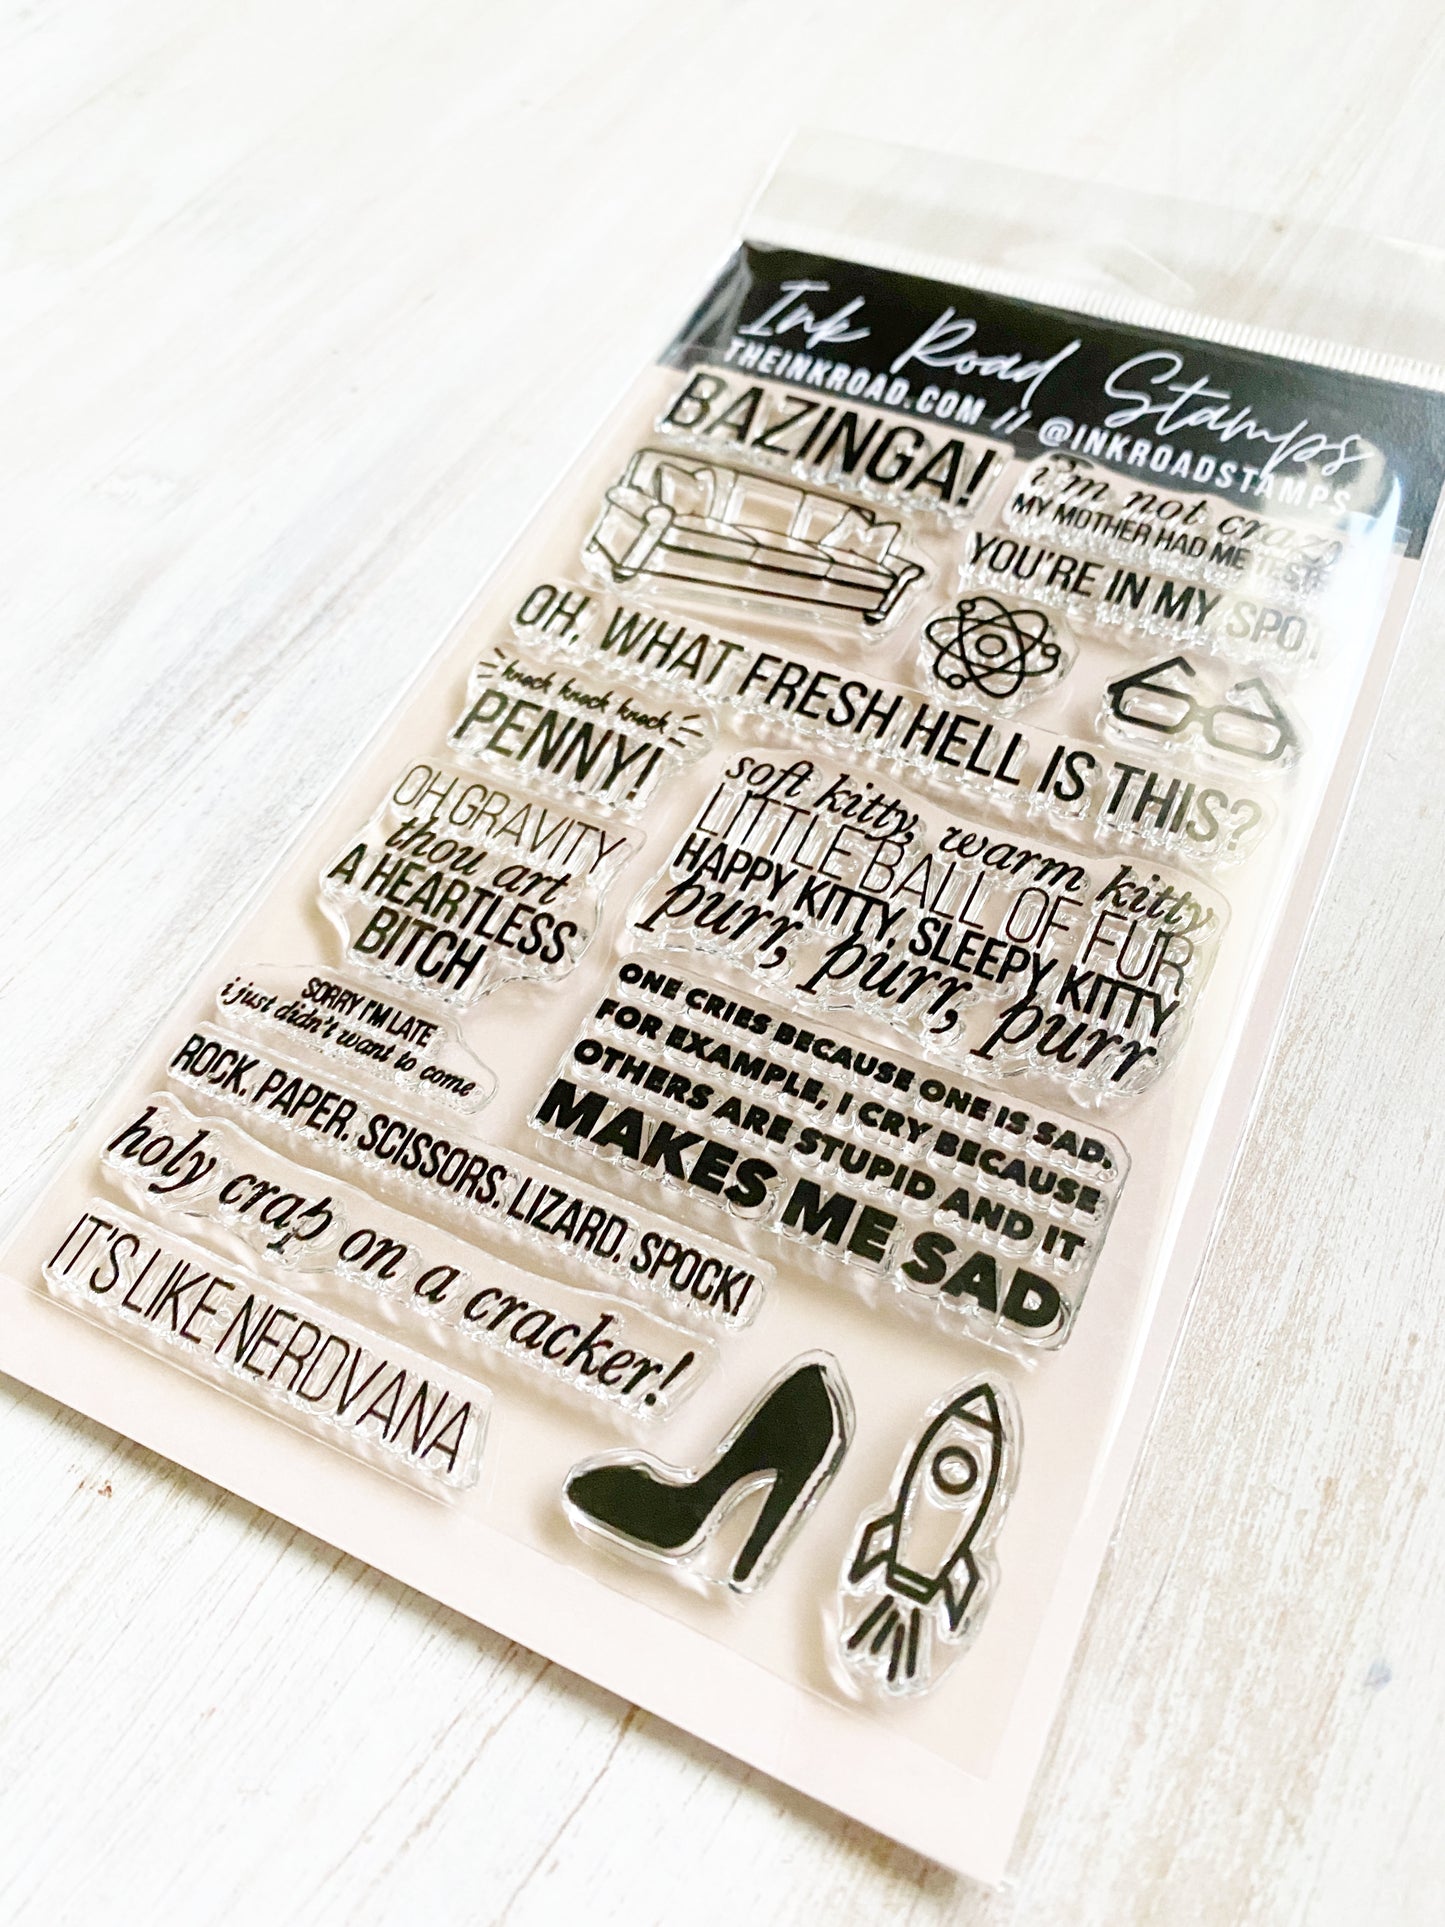 Ink Road Stamps
THEINKROAD.COM // @INKROADSTAMPS
BAZINGA!
i'm not crazy
MY MOTHER HAD ME TESTED
YOU'RE IN MY SPOT
OH, WHAT FRESH HELL IS THIS?
knock knock knock
PENNY!
OH GRAVITY
thou art
A HEARTLESS
BITCH
soft kitty, warm kitty,
LITTLE BALL OF FUR
HAPPY KITTY, SLEEPY KITTY
purr, purr, purr
SORRY I'M LATE
i just didn't want to come
ONE CRIES BECAUSE ONE IS SAD.
FOR EXAMPLE, I CRY BECAUSE
OTHERS ARE STUPID AND IT
MAKES ME SAD
ROCK. PAPER. SCISSORS. LIZARD. SPOCK!
holy crap on a cracker!
IT'S LIKE NERDVANA